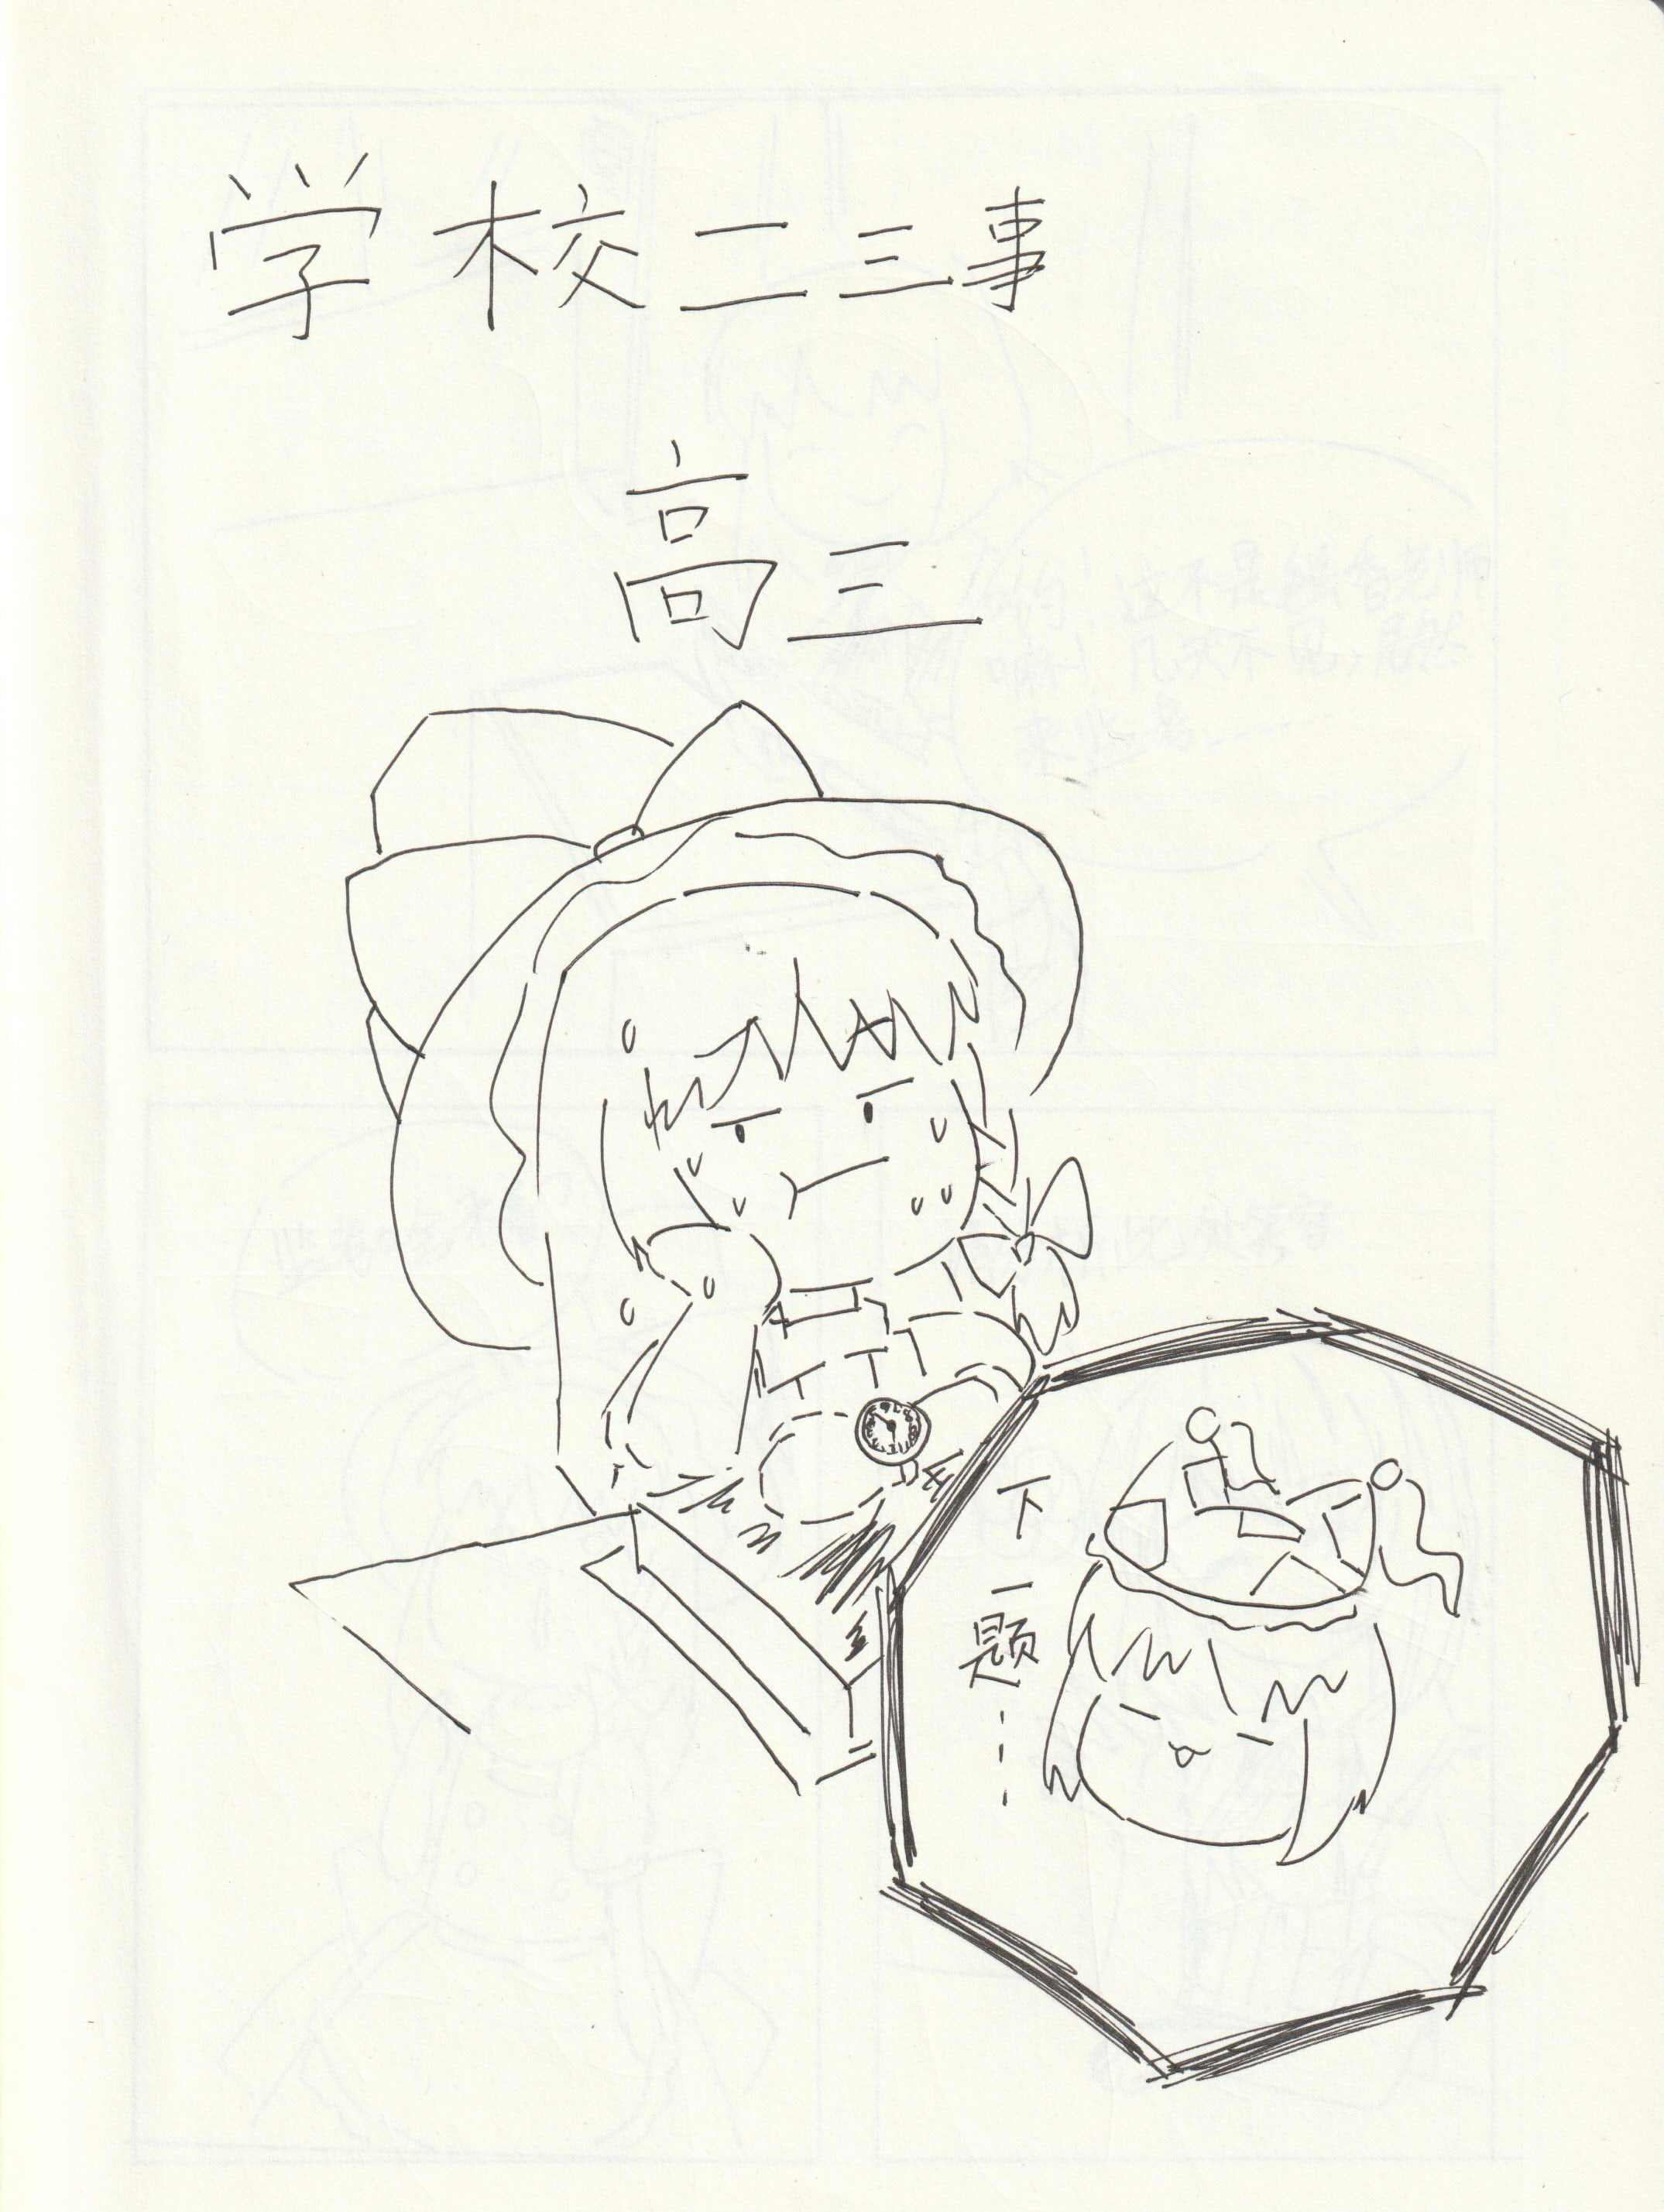 学校二三事
高三
下一题……